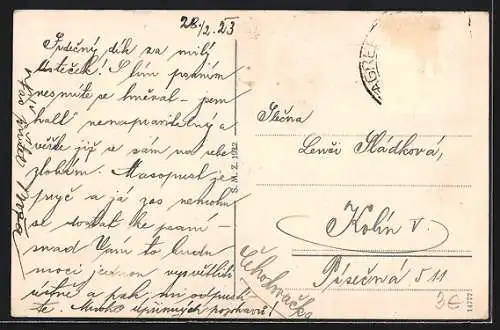 28./2.23
Srdečný dík za milý
lísteček! S tím psaním
nesmíte se hněvat – jsem
halt nenapravitelný a
věřte již se sám na sebe
zlobím. Masopust je
pryč a já zas nemohu
se dostat ke psaní –
snad Vám to budu
moci jednou vysvětliti
ústně a pak mi odpustí-
te. Mnoho upřímných pozdravů!
S.M.Z. 1922
AGREB
Slečna
Lenči Sládková,
Kolín v.
Písečná 511
Čechoslovačka
3€
14777